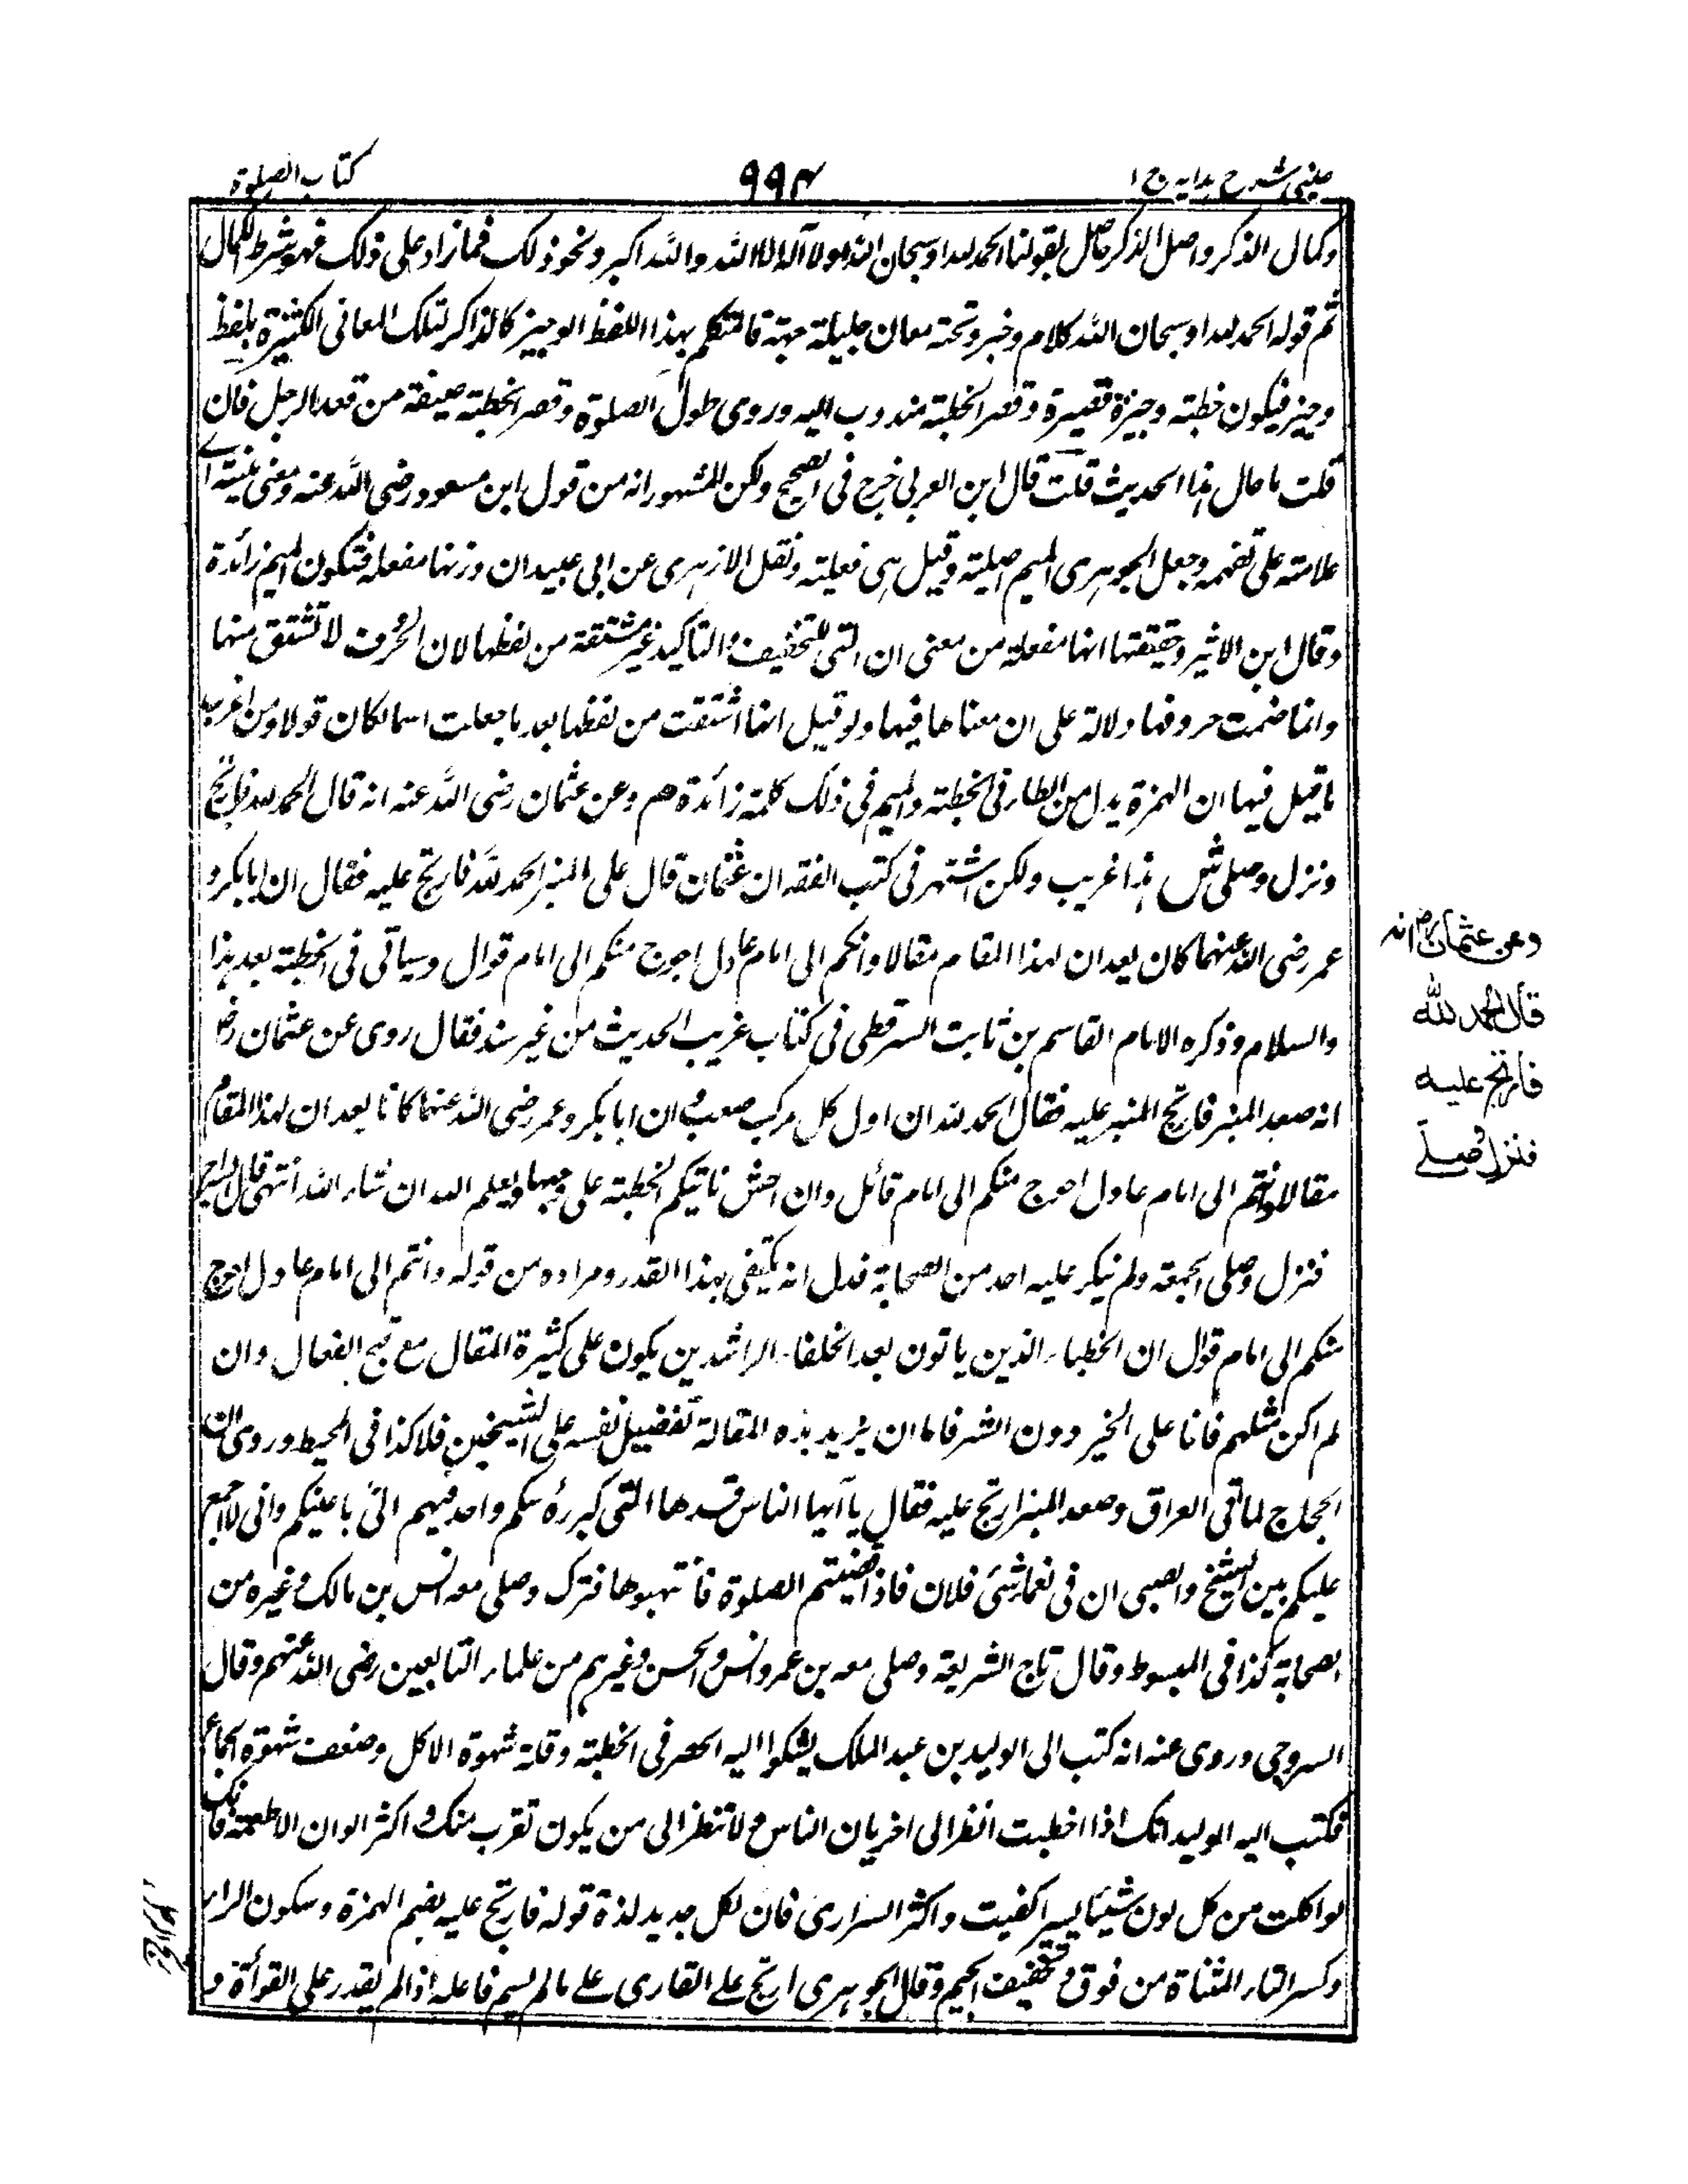 عینی شرح ہدایہ ج ۱
۹۹۴
کتاب الصلوة
وکمال الذکر واصل الذکر حاصل بقولنا الحمد لله او سبحان الله او لا اله الا الله والله اکبر ونحو ذلک فما زاد علی ذلک فهو شرط الکمال
ثم قوله الحمد لله او سبحان الله کلام وخبر وتحته معان جلیلة جمة فالمتکلم بهذا اللفظ الوجیز کالذاکر لتلک المعانی الکثیرة بلفظ
وجیز فیکون خطبته وجیزة قصیرة وقصر الخطبة مندوب الیه وروی طول الصلوة وقصر الخطبة مئنة من فقه الرجل فان
قلت ما حال هذا الحدیث قلت قال ابن العربی خرج فی الصحیح ولکن المشهور انه من قول ابن مسعود رضی الله عنه ومعنی مئنة ای
علامته علی تفهمه وجعل الجوهری المیم اصلیة وقیل هی فعلیة ونقل الازهری عن ابی عبید ان وزنها مفعلة فتکون المیم زائدة
وقال ابن الاثیر وحقیقتها انها مفعلة من معنی ان التی للتحقیق والتاکید غیر مشتقة من لفظها لان الحروف لا تشتق منها
وانما ضمت حروفها دلالة علی ان معناها فیها ولو قیل انها اشتقت من لفظها بعد ما جعلت اسما لکان قولا ومن اغرب
ما قیل فیها ان الهمزة بدل من الظاء فی الخطبة والمیم فی ذلک کلمة زائدة هم وعن عثمان رضی الله عنه انه قال الحمد لله فارتج
ونزل وصلی ش هذا غریب ولکن اشتهر فی کتب الفقه ان عثمان قال علی المنبر الحمد لله فارتج علیه فقال ان ابا بکر و
عمر رضی الله عنهما کان یعدان لهذا المقام مقالا وانکم الی امام عادل احوج منکم الی امام قوال وسیاتی فی الخطبة بعد هذا
والسلام وذکره الامام القاسم بن ثابت السرقطی فی کتاب غریب الحدیث من غیر سند فقال روی عن عثمان رض
انه صعد المنبر فارتج المنبر علیه فقال الحمد لله ان اول کل مرکب صعب وان ابا بکر وعمر رضی الله عنهما کانا یعدان لهذا المقام
مقالا وانتم الی امام عادل احوج منکم الی امام قائل وان اعش تاتیکم الخطبة علی وجهها ویعلم الله ان شاء الله انتهی قال
فنزل وصلی الجمعة ولم ینکر علیه احد من الصحابة فدل انه یکتفی بهذا القدر ومراده من قوله وانتم الی امام عادل احوج
منکم الی امام قوال ان الخطباء الذین یاتون بعد الخلفاء الراشدین یکون علی کثیرة المقال مع قبح الفعال وان
لم اکن مثلهم فانا علی الخیر دون الشر فاما ان یرید بهذه المقالة تفضیل نفسه علی الشیخین فلا کذا فی المحیط وروی ان
الحجاج لما اتی العراق وصعد المنبر ارتج علیه فقال یا ایها الناس قد هالنی کبر رؤسکم واحدفیهم الی باعینکم وانی لا اجمع
علیکم بین الشیخ والصبی ان فی نعما شئ فلان فاذا قضیتم الصلوة فانتهبوها فترک وصلی معه انس بن مالک وغیره من
الصحابة کذا فی المبسوط وقال تاج الشریعة وصلی معه بن عمر وانس والحسن وغیرهم من علماء التابعین رضی الله عنهم وقال
السروجی وروی عنه انه کتب الی الولید بن عبد الملک یشکوا الیه الحصر فی الخطبة وقلة شهوة الاکل وضعف شهوة الجماع
فکتب الیه الولید انک اذا اخطبت انظر الی اخریان الناس ولا تنظر الی من یکون تقرب منک واکثر الوان الاطعمة فانک
لو اکلت من کل لون شیئا یسیرا کفیت واکثر السراری فان لکل جدید لذة قوله فارتج علیه بضم الهمزة وسکون الراء
وکسر التاء المثناة من فوق وتخفیف الجیم وقال الجوهری ارتج علی القاری علی ما لم یسم فاعله اذا لم یقدر علی القرأة و
وعن عثمان رض انه
قال الحمد لله
فارتج علیه
فنزل وصلی